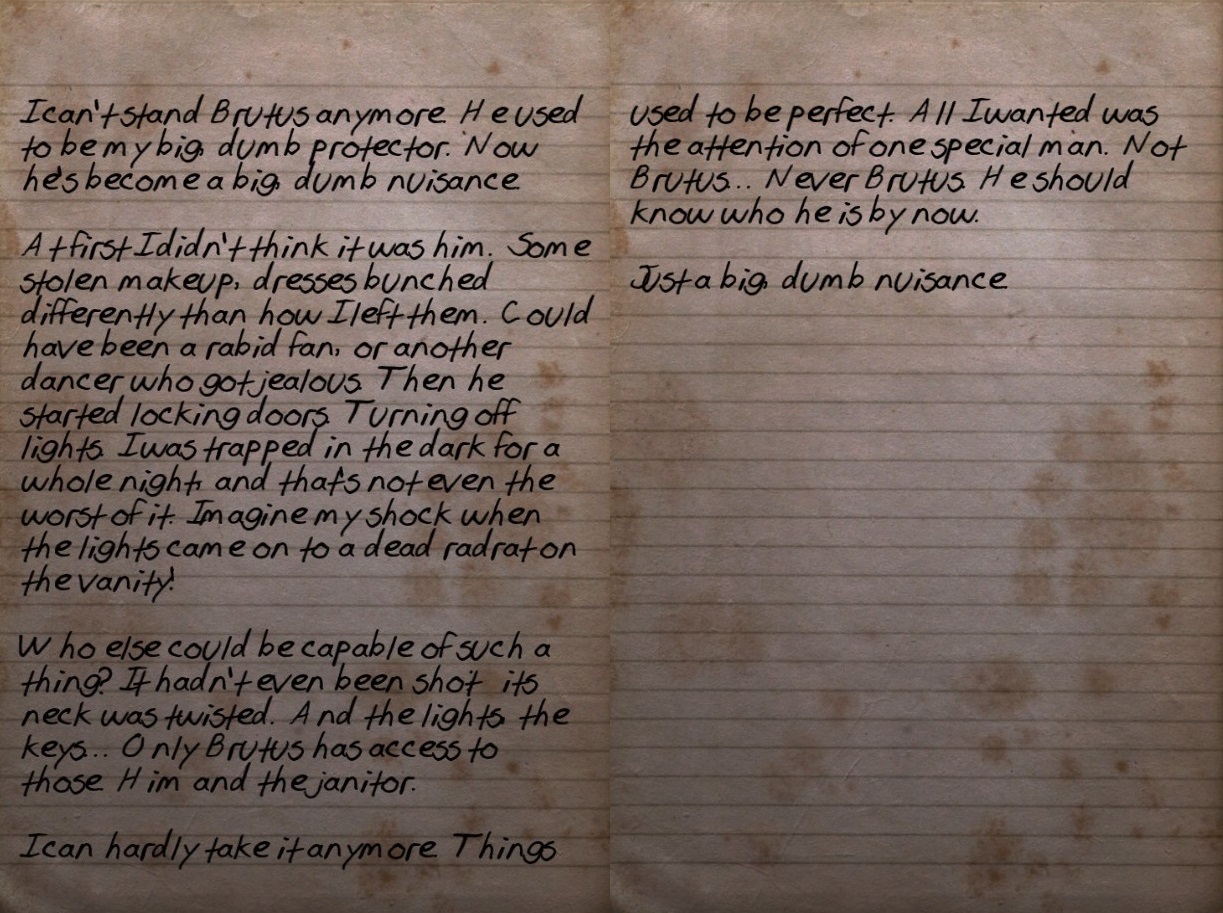 I can't stand Brutus anymore. He used
to be my big, dumb protector. Now
he's become a big, dumb nuisance.
At first I didn't think it was him. Some
stolen makeup, dresses bunched
differently than how I left them. Could
have been a rabid fan, or another
dancer who got jealous. Then he
started locking doors. Turning off
lights. I was trapped in the dark for a
whole night, and that's not even the
worst of it. Imagine my shock when
the lights came on to a dead radrat on
the vanity!
Who else could be capable of such a
thing? It hadn't even been shot its
neck was twisted. And the lights, the
keys... Only Brutus has access to
those. Him and the janitor.
I can hardly take it anymore. Things
used to be perfect. All I wanted was
the attention of one special man. Not
Brutus... Never Brutus. He should
know who he is by now.
Just a big, dumb nuisance.